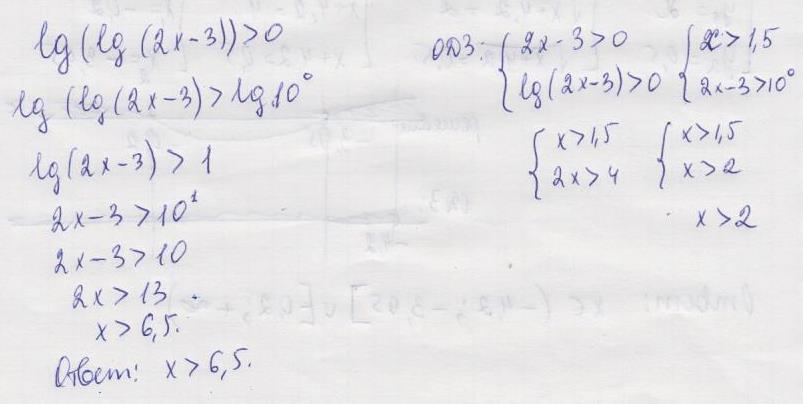 lg(lg(2x-3))>0
lg(lg(2x-3)>lg10⁰
lg(2x-3)>1
2x-3>10¹
2x-3>10
2x>13
x>6,5.
Ответ: x>6,5.
ОДЗ: { 2x-3>0 { x>1,5
lg(2x-3)>0 2x-3>10⁰
{ x>1,5 { x>1,5
2x>4 x>2
x>2